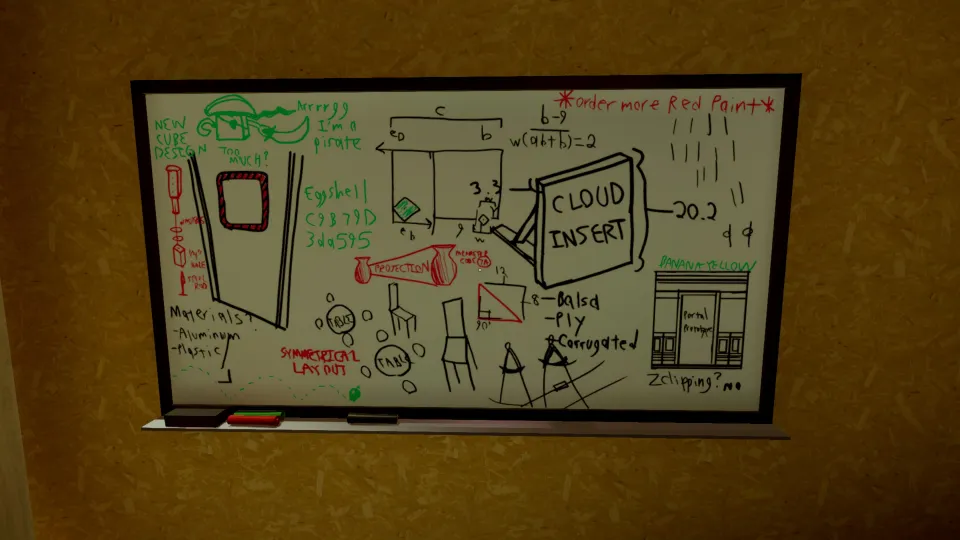 NEW
CUBE
DESIGN
TOO
MUCH?
Arrrrgg
I'm a
pirate
Eggshell
C9B79D
3da595
Materials?
-Aluminum
-Plastic
c
b
b-9
w(ab+b)=2
3.3
w
CLOUD
INSERT
20.2
*order more Red Paint*
PROJECTION
12
8
90°
-Balsa
-Ply
-Corrugated
TABLE
TABLE
SYMMETRICAL
LAYOUT
BANANA YELLOW
Portal
Prototype
Zclipping? no